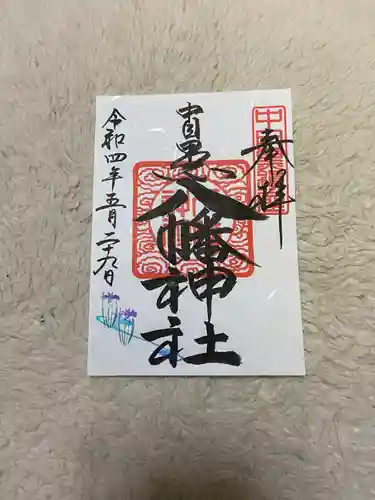 奉拝
中目黒
八幡神社
令和四年五月二十九日